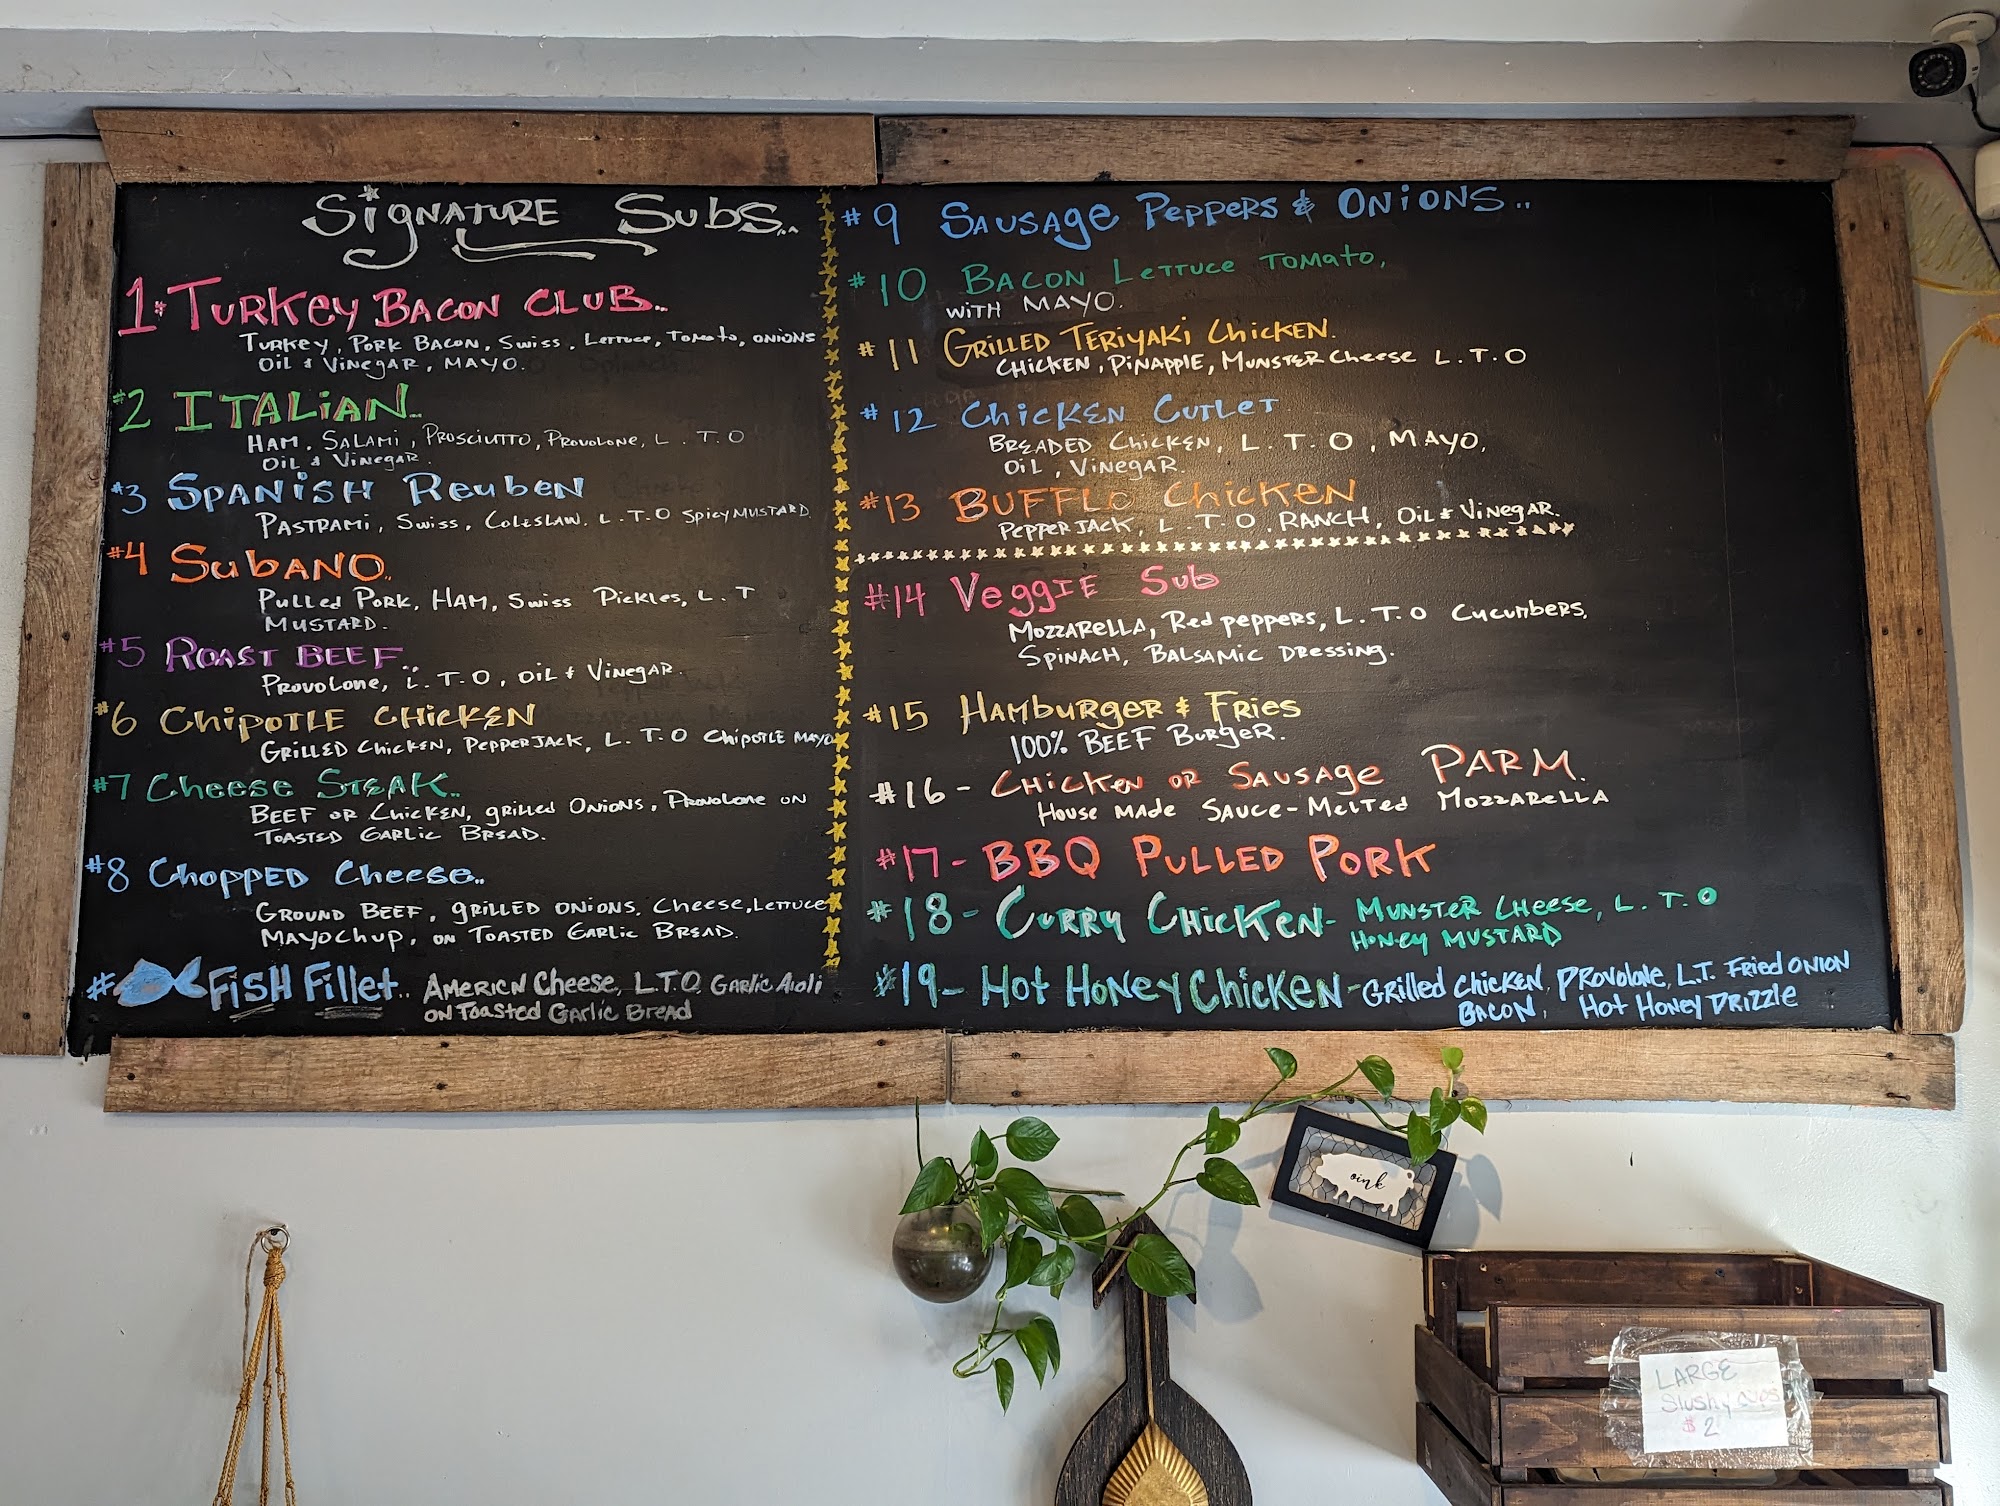 Signature Subs..
1. Turkey Bacon Club..
Turkey, Pork Bacon, Swiss, Lettuce, Tomato, onions
Oil & Vinegar, Mayo.
#2 Italian..
Ham, Salami, Prosciutto, Provolone, L.T.O
Oil & Vinegar.
#3 Spanish Reuben
Pastrami, Swiss, Coleslaw, L.T.O Spicy Mustard.
#4 Subano..
Pulled Pork, Ham, Swiss Pickles, L.T
Mustard.
#5 Roast Beef..
Provolone, L.T.O, Oil & Vinegar.
#6 Chipotle Chicken
Grilled Chicken, PepperJack, L.T.O Chipotle Mayo
#7 Cheese Steak..
Beef or Chicken, grilled Onions, Provolone on
Toasted Garlic Bread.
#8 Chopped Cheese..
Ground Beef, grilled onions, Cheese, Lettuce
Mayochup, on Toasted Garlic Bread.
# Fish Fillet.. Americn Cheese, L.T.O Garlic Aioli
on Toasted Garlic Bread
#9 Sausage Peppers & Onions..
#10 Bacon Lettuce Tomato,
with Mayo.
#11 Grilled Teriyaki Chicken.
Chicken, Pinapple, Munster Cheese L.T.O
#12 Chicken Cutlet
Breaded Chicken, L.T.O, Mayo,
Oil, Vinegar.
#13 Bufflo Chicken
PepperJack, L.T.O, Ranch, Oil & Vinegar.
#14 Veggie Sub
Mozzarella, Red peppers, L.T.O Cucumbers,
Spinach, Balsamic Dressing.
#15 Hamburger & Fries
100% Beef Burger.
#16 - Chicken or Sausage Parm.
House made Sauce - Melted Mozzarella
#17 - BBQ Pulled Pork
#18 - Curry Chicken - Munster Cheese, L.T.O
Honey Mustard
#19 - Hot Honey Chicken - Grilled Chicken, Provolone, L.T. Fried Onion
Bacon, Hot Honey Drizzle
oink
Large
Slushy cups
$2